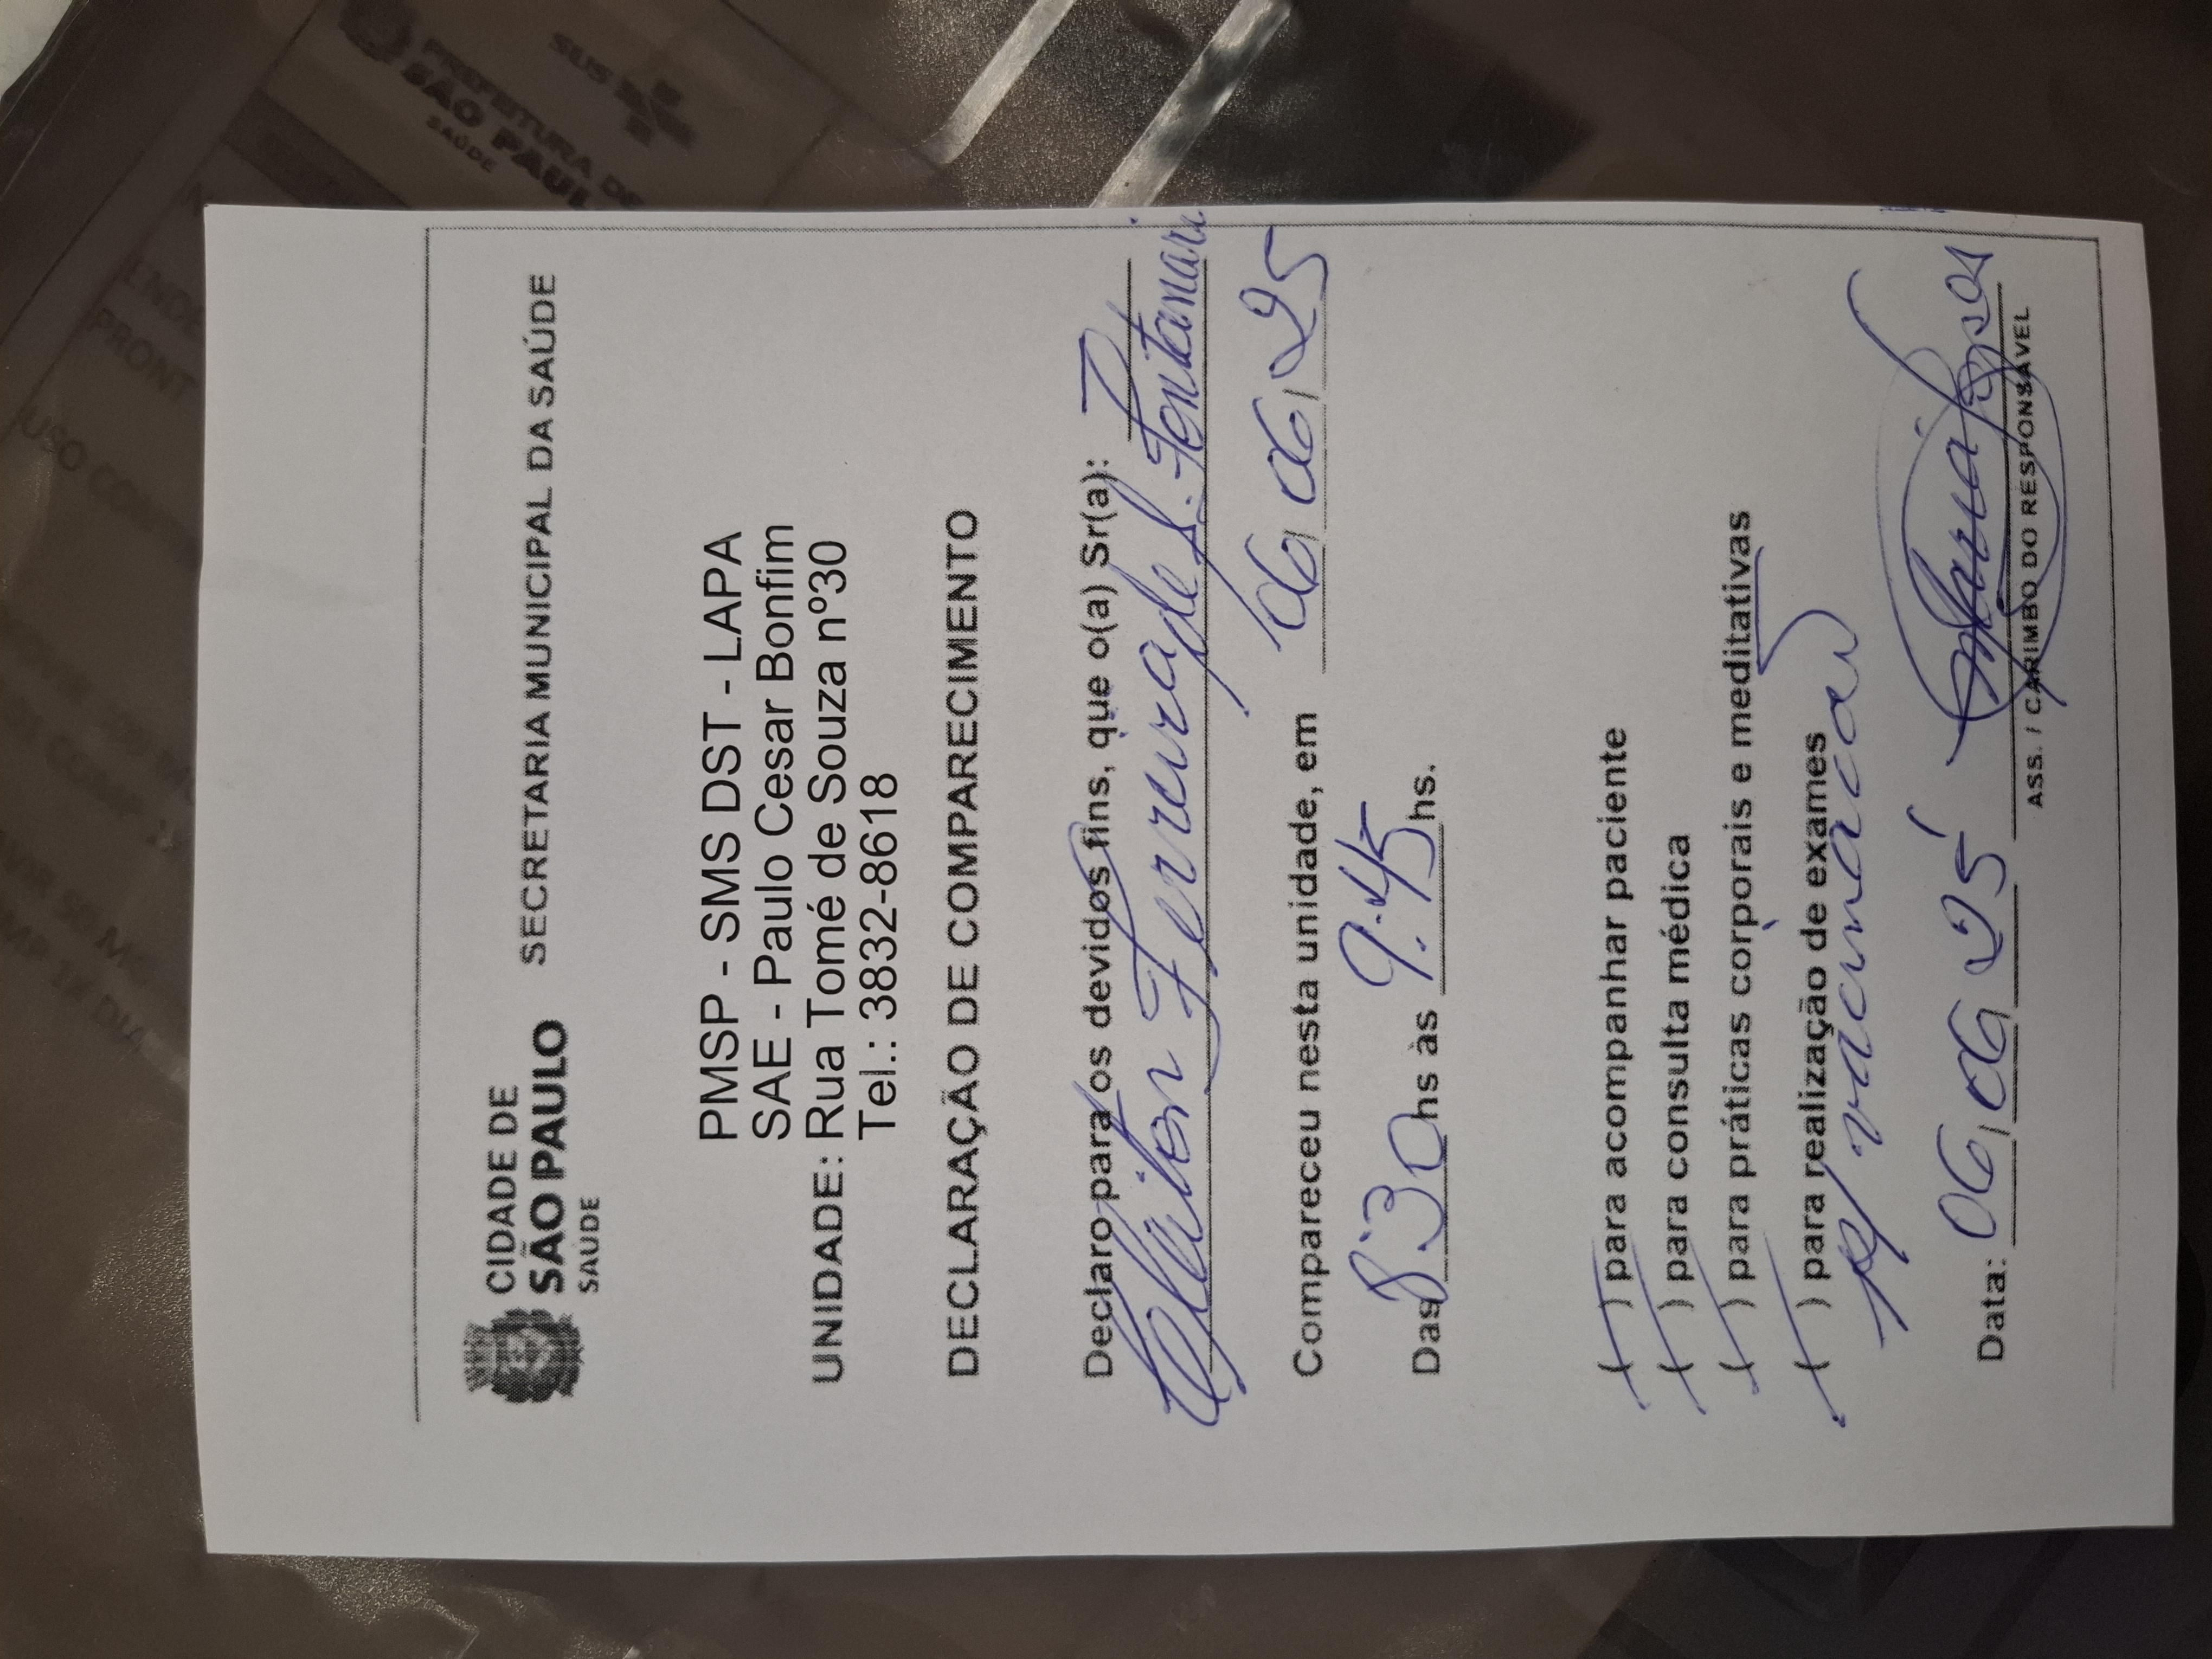 CIDADE DE
SÃO PAULO
SAÚDE
SECRETARIA MUNICIPAL DA SAÚDE
PMSP - SMS DST - LAPA
SAE - Paulo Cesar Bonfim
UNIDADE: Rua Tomé de Souza nº30
Tel.: 3832-8618
DECLARAÇÃO DE COMPARECIMENTO
Declaro para os devidos fins, que o(a) Sr(a):
Cleiton Ferreira de S. Fontanari
Compareceu nesta unidade, em 06/06/25
Das 8:30 hs às 9:45 hs.
( ) para acompanhar paciente
( ) para consulta médica
( ) para práticas corporais e meditativas
( ) para realização de exames
p/ vacinação
Data: 06/06/25
ASS. / CARIMBO DO RESPONSÁVEL
PREFEITURA DE
SÃO PAULO
SAÚDE
SUS